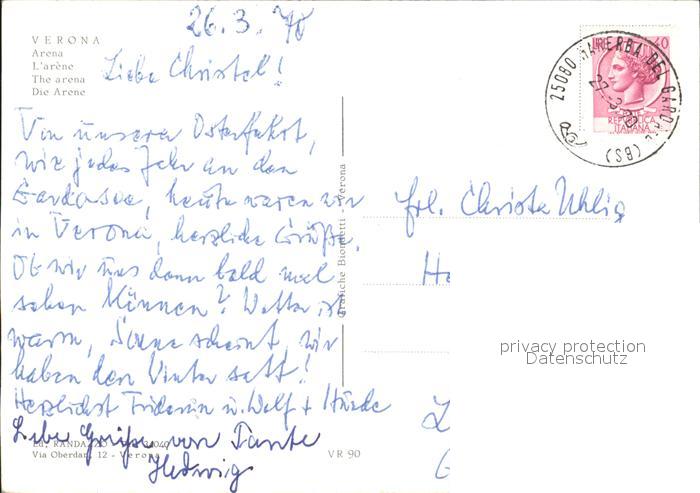 26. 3. 70
VERONA
Arena
L'arène
The arena
Die Arene
Liebe Christel!
Von unserer Osterfahrt,
wie jedes Jahr an den
Gardasee, heute waren wir
in Verona, herzliche Grüße.
Ob wir uns dann bald mal
sehen können? Wetter ist
warm, Sonne scheint, wir
haben den Winter satt!
Herzlichst u. Wolf + Hunde
Liebe Grüße von Tante
Hedwig
Ed. RANDA
Via Oberdan, 12 - Verona
VR 90
Grafiche Biondetti - Verona
40
REPUBBLICA
ITALIANA
25080 MANERBA DEL GARDA
(BS)
Frl. Christa Uhlig
privacy protection
Datenschutz